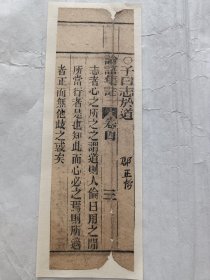 ○子曰志於道
論語集註 卷四 三
志者心之所之之謂道則人倫日用之間
所當行者是也知此而心必之焉則所適
者正而無他歧之惑矣